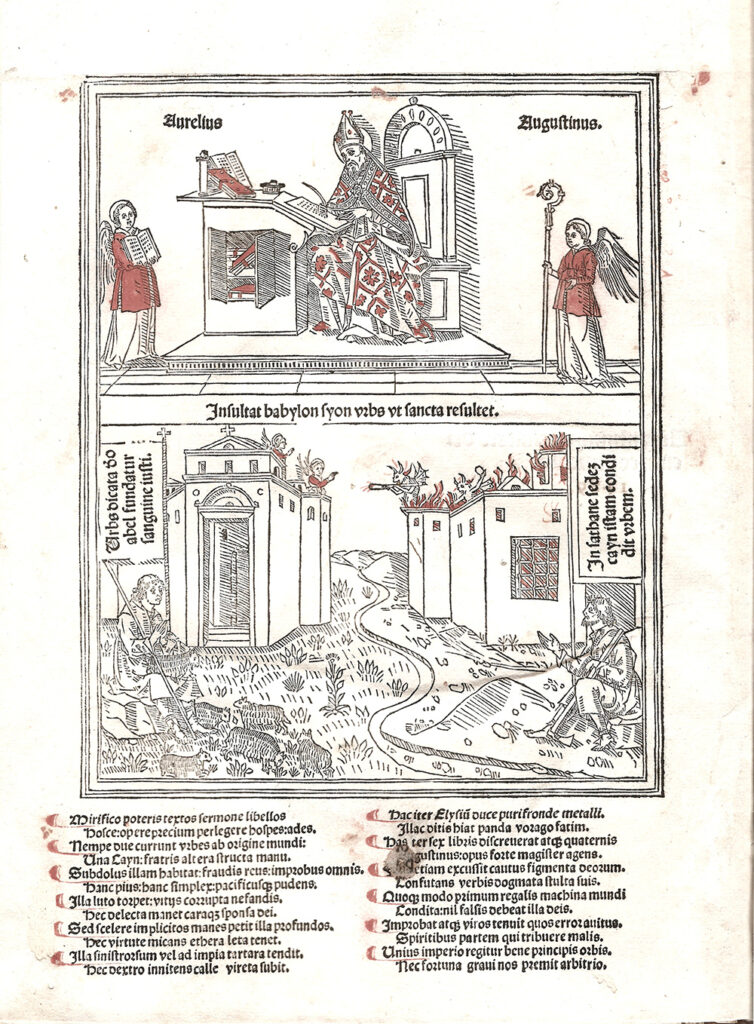 Aurelius
Augustinus.
Insultat babylon syon vrbs vt sancta resultet.
Urbs dicata deo
abel fundatur
sanguine iusti.
In sathane sedeʒ
cayn istam condi
dit vrbem.
Mirifico poteris textos sermone libellos
Hosce: opere precium perlegere hospes: ades.
Nempe due currunt vrbes ab origine mundi:
Una Cayn: fratris altera structa manu.
Subdolus illam habitat: fraudis reus: improbus omnis.
Hanc pius: hanc simplex: pacificusqꝫ pudens.
Illa luto torpet: vitijs corrupta nefandis.
Hec delecta manet caraqꝫ sponsa dei.
Sed scelere implicitos manes petit illa profundos.
Hec virtute micans ethera leta tenet.
Illa sinistrorsum vel ad impia tartara tendit.
Hec dextro innitens calle vireta subit.
Hac iter Elysiū duce purifronde metalli.
Illac ditis hiat panda vorago fatim.
Has ter sex libris discreuerat atqꝫ quaternis
gustinus: opus forte magister agens.
etiam excussit cautus figmenta deorum.
Confutans verbis dogmata stulta suis.
Quoqꝫ modo primum regalis machina mundi
Condita: nil falsis debeat illa deis.
Improbat atqꝫ viros tenuit quos error auitus.
Spiritibus partem qui tribuere malis.
Unius imperio regitur bene principis orbis.
Nec fortuna graui nos premit arbitrio.